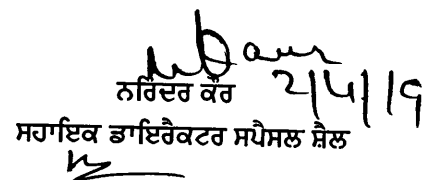 2/4/19
ਨਰਿੰਦਰ ਕੌਰ
ਸਹਾਇਕ ਡਾਇਰੈਕਟਰ ਸਪੈਸਲ ਸ਼ੈਲ